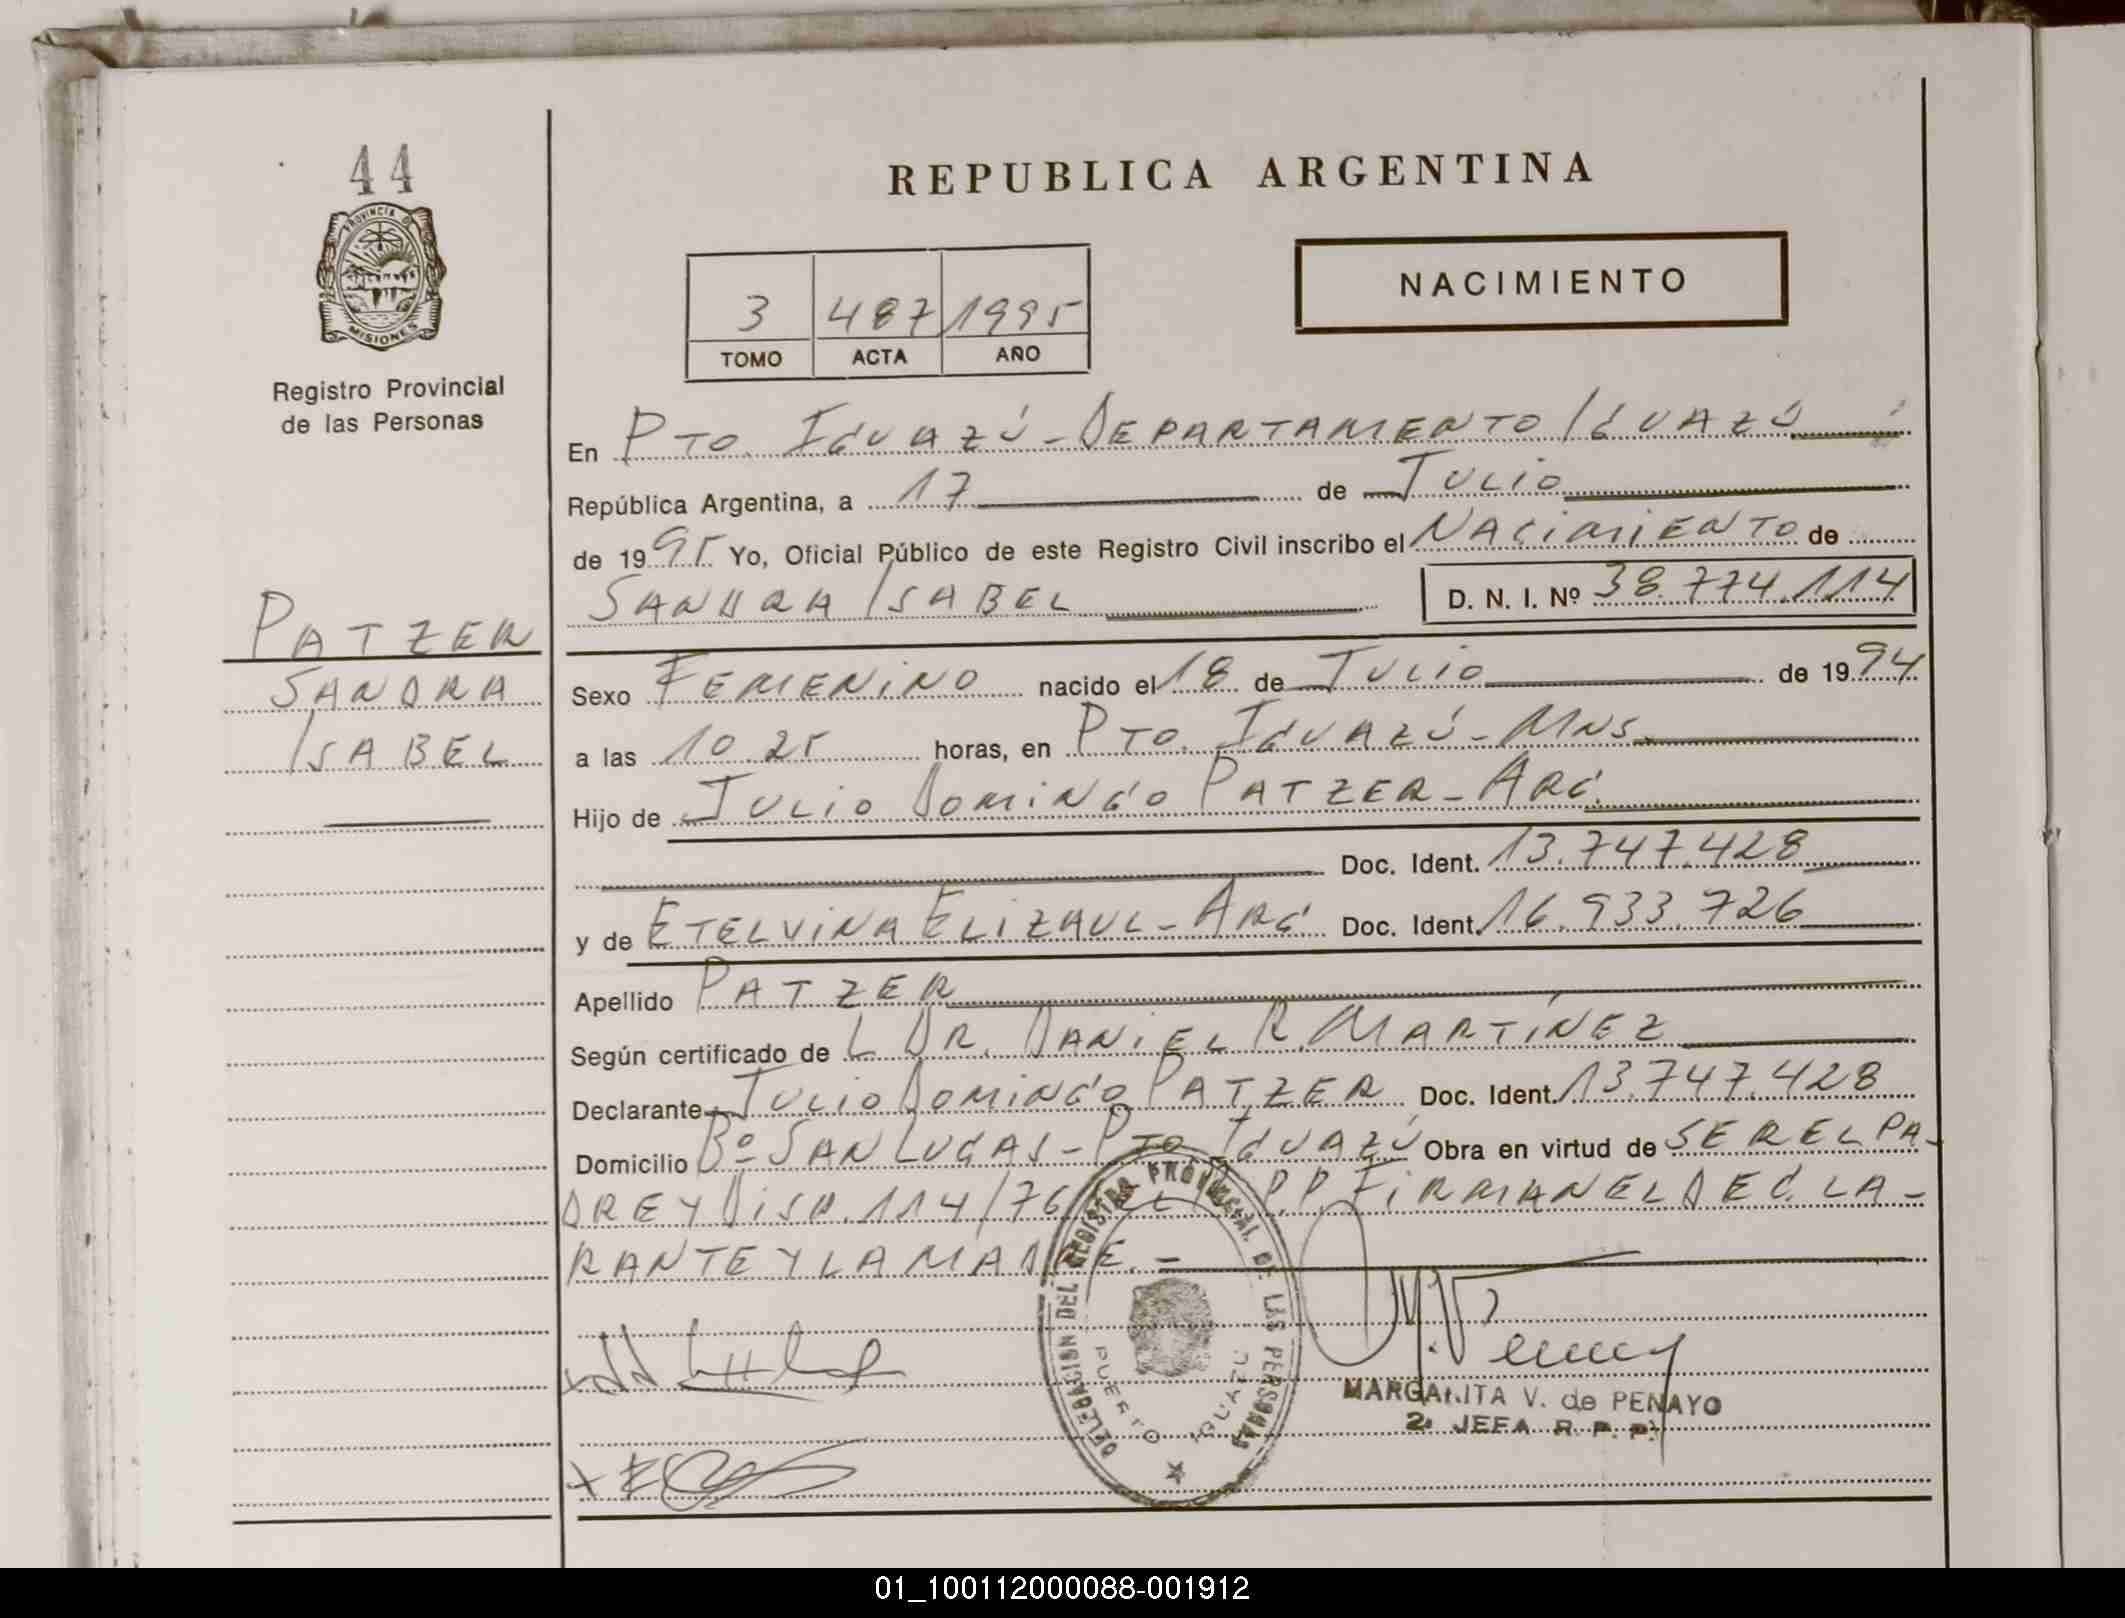 44
PROVINCIA DE
MISIONES
Registro Provincial
de las Personas
PATZER
SANDRA
ISABEL
REPUBLICA ARGENTINA
NACIMIENTO
3 487 1995
TOMO ACTA AÑO
En PTO. IGUAZÚ - DEPARTAMENTO IGUAZÚ
República Argentina, a 17 de JULIO
de 1995 Yo, Oficial Público de este Registro Civil inscribo el NACIMIENTO de
SANDRA ISABEL D. N. I. Nº 38.774.114
Sexo FEMENINO nacido el 18 de JULIO de 1994
a las 10.25 horas, en PTO. IGUAZÚ - MNS.
Hijo de JULIO DOMINGO PATZER - ARG.
Doc. Ident. 13.747.428
y de ETELVINA ELIZAUL - ARG. Doc. Ident. 16.933.726
Apellido PATZER
Según certificado de L DR. DANIEL R. MARTÍNEZ
Declarante JULIO DOMINGO PATZER Doc. Ident. 13.747.428
Domicilio Bº SAN LUCAS - PTO IGUAZÚ Obra en virtud de SER EL PA-
DRE Y DISP. 114/76 P.P. FIRMAN EL DECLA-
RANTE Y LA MADRE. -
DELEGACION DEL REGISTRO PROVINCIAL DE LAS PERSONAS
PUERTO IGUAZU
MARGARITA V. de PENAYO
2ª JEFA R. P. P.
01_100112000088-001912